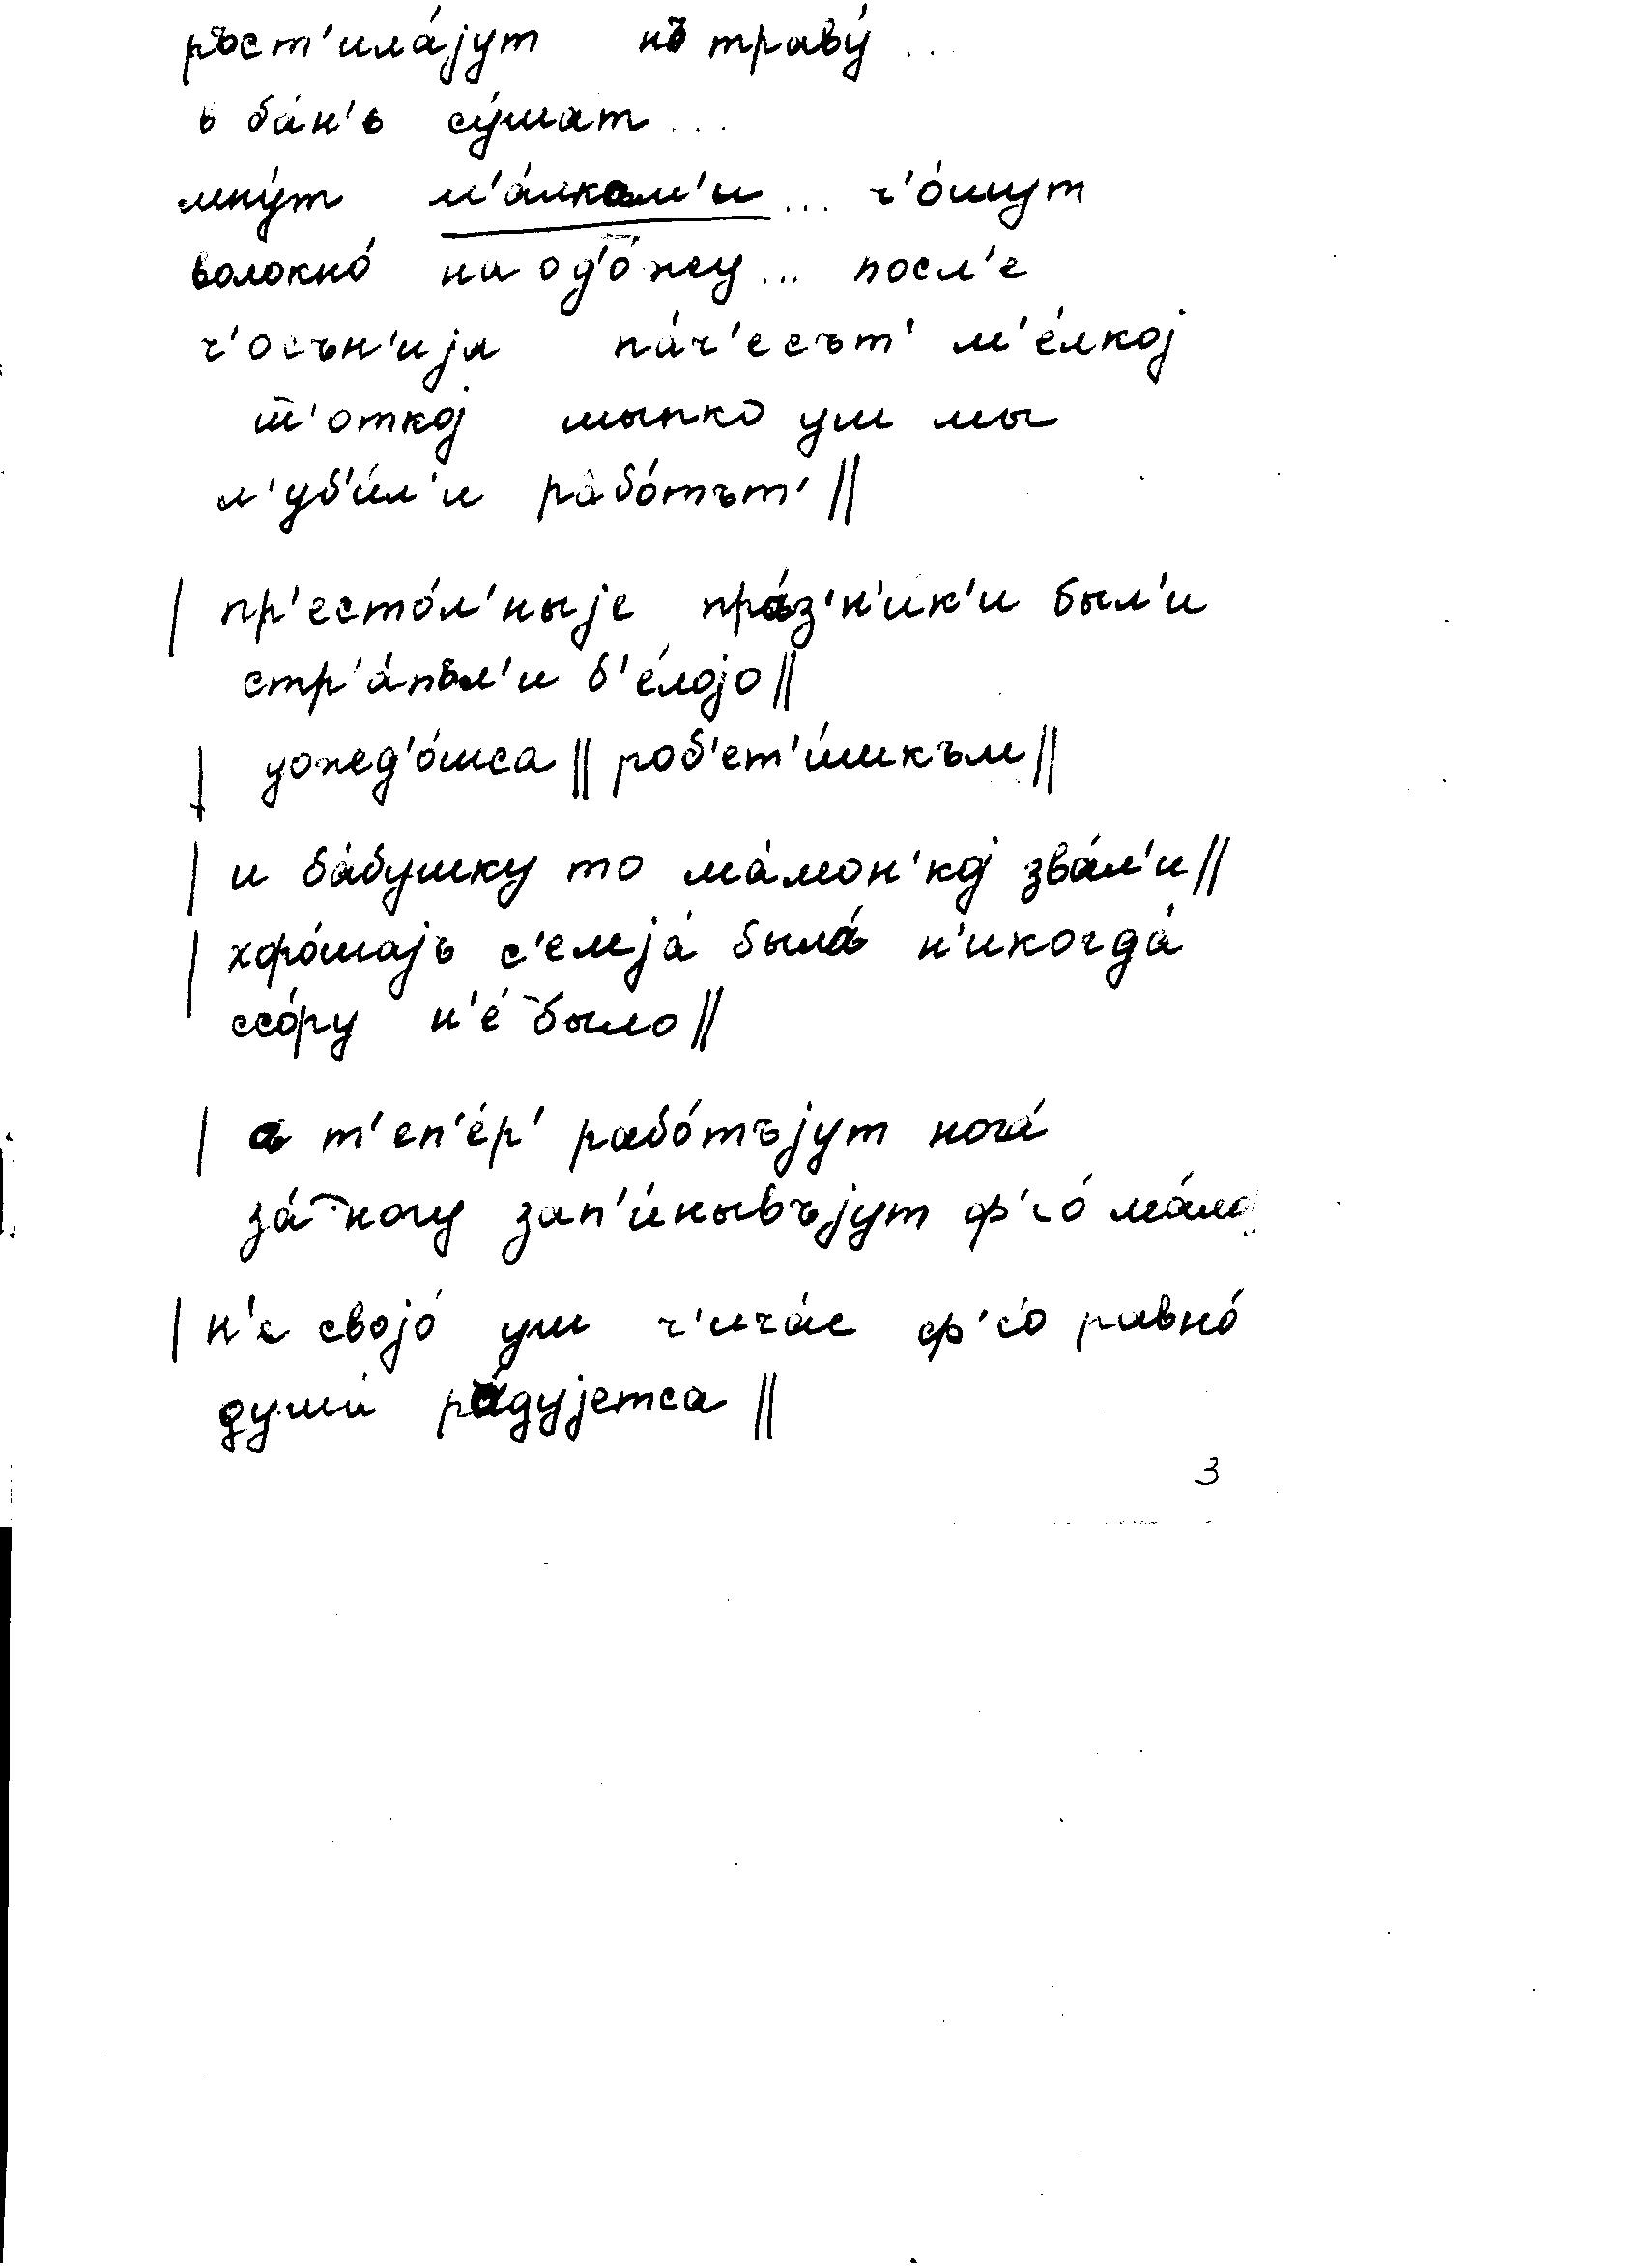 ръст'ила́јут нъ траву́ ..
в ба́н'ь су́шат ...
мну́т м'а́лкам'и ... ч'о́шут
волокно́ на од'о́жу ... посл'е
ч'осън'ија па́ч'есът' м'е́лкој
ш̅'откој шыпко уш мы
л'уб'и́л'и рабо́тът' ||
| пр'есто́л'ныје пра́з'н'ик'и был'и
стр'а́пъл'и б'е́лојо ||
| уожед'о́шса || роб'ет'и́шкъм ||
| и ба́бушку то ма́мон'кој зва́л'и ||
| хоро́шајъ с'емја́ была́ н'икогда́
ссо́ру н'е́ было ||
| а т'еп'е́р' рабо́тъјут нога́
за́ ногу зап'и́нывъјут ф'с'о́ ма́ло
| н'е својо́ уш ч'ича́с ф'с'о́ равно́
душа́ ра́дујетса ||
3